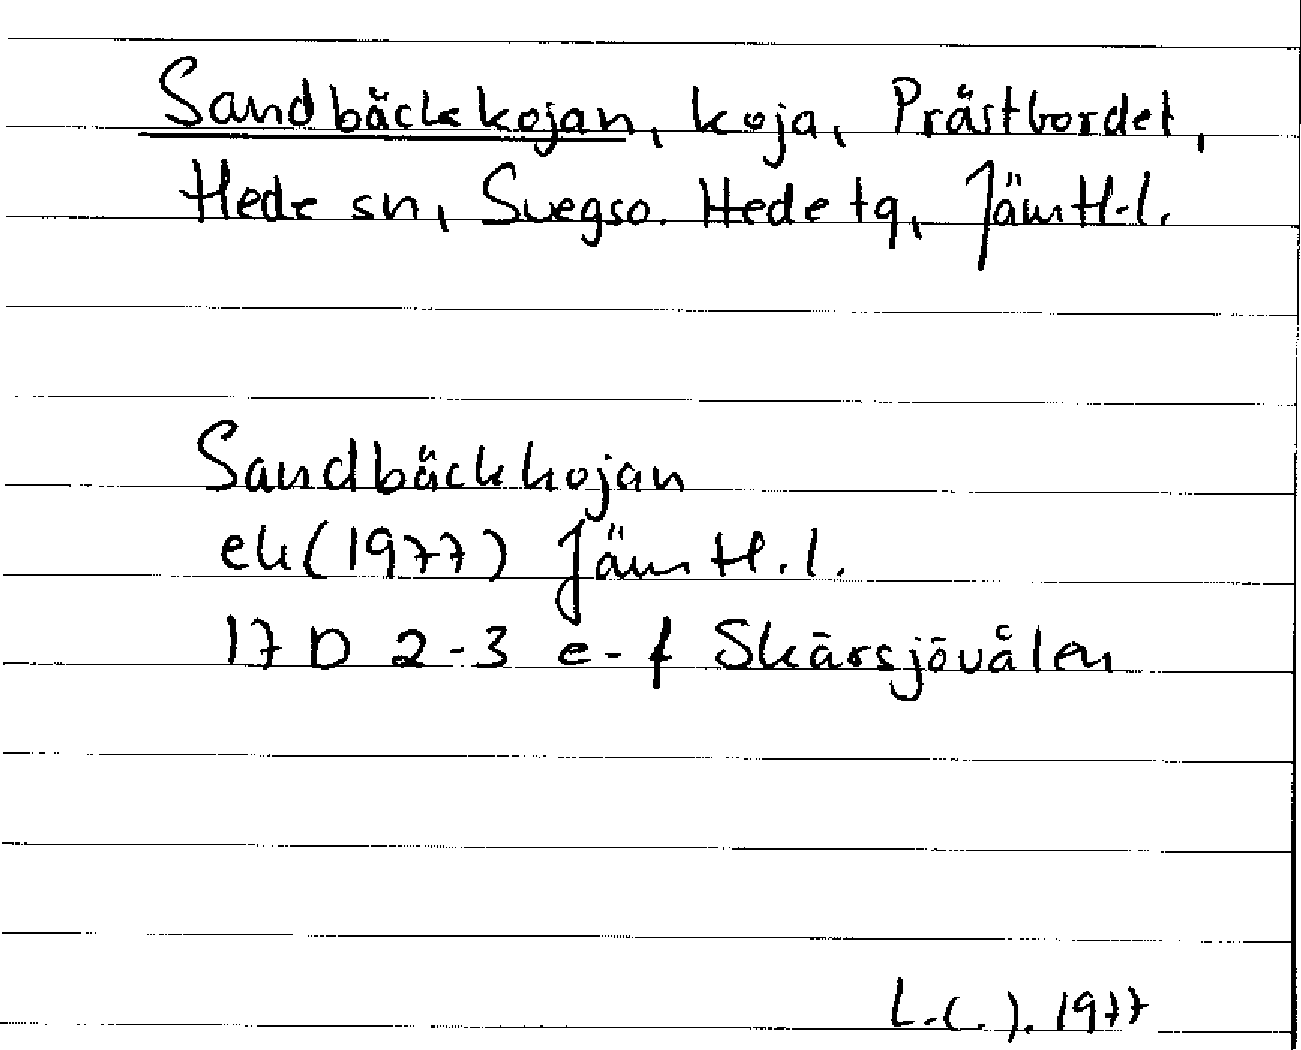 Sandbäckkojan, koja, Prästbordet,
Hede sn, Svegso. Hede tg, JämtH.l.
Sandbäckkojan
ek (1977) Jämt H.l.
17 D 2-3 e-f Skärsjövålen
1977